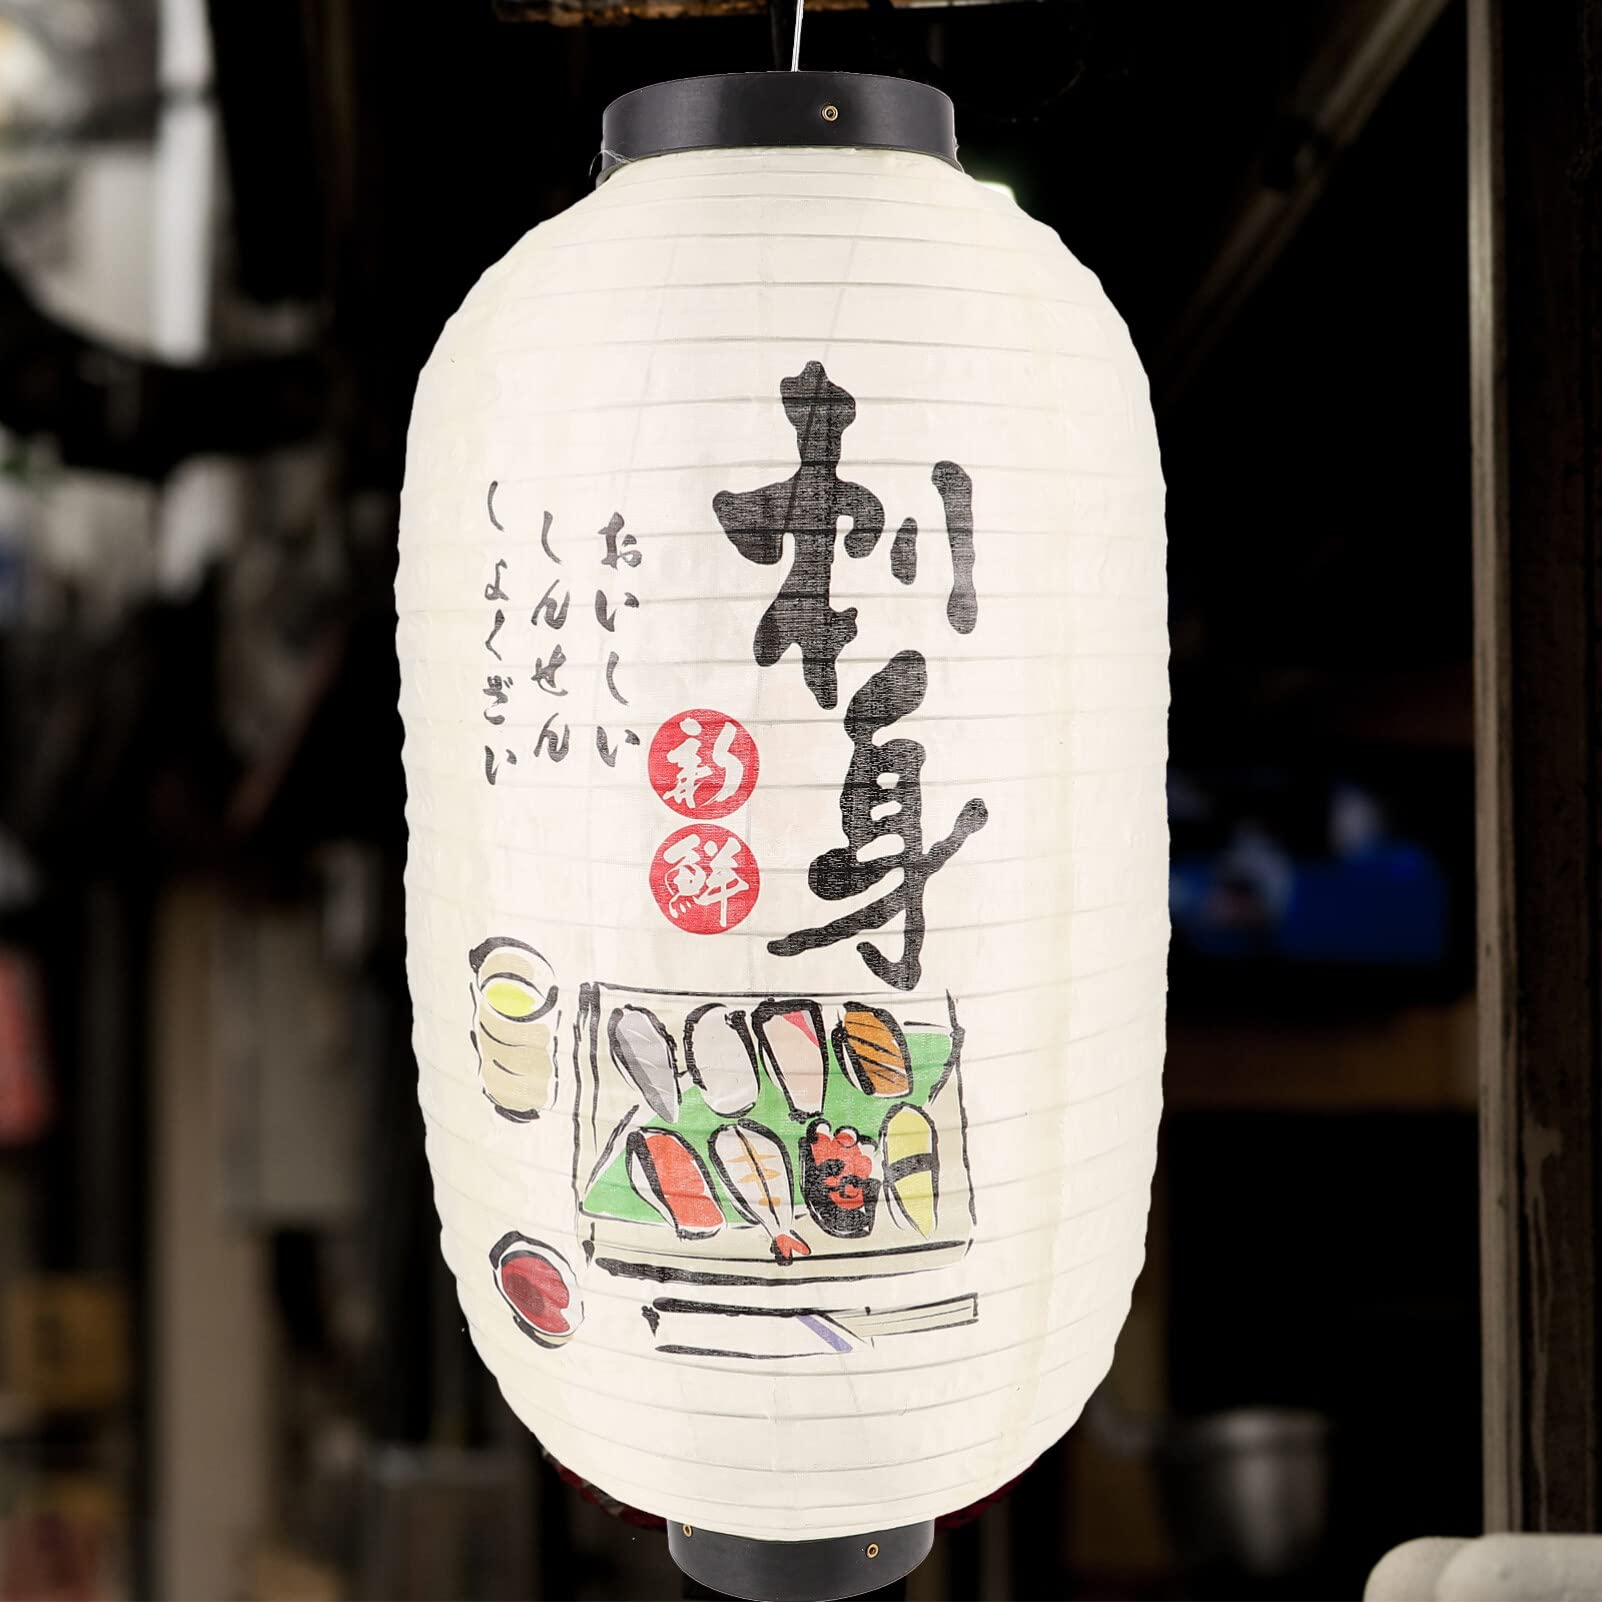 刺身
新鮮
おいしい
しんせん
しょくざい